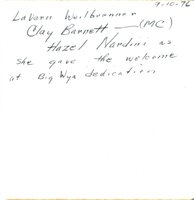 9-10-76
LaVern Weilbrenner
Clay Barnett — (MC)
Hazel Nardini as
she gave the welcome
at Big Wya dedication